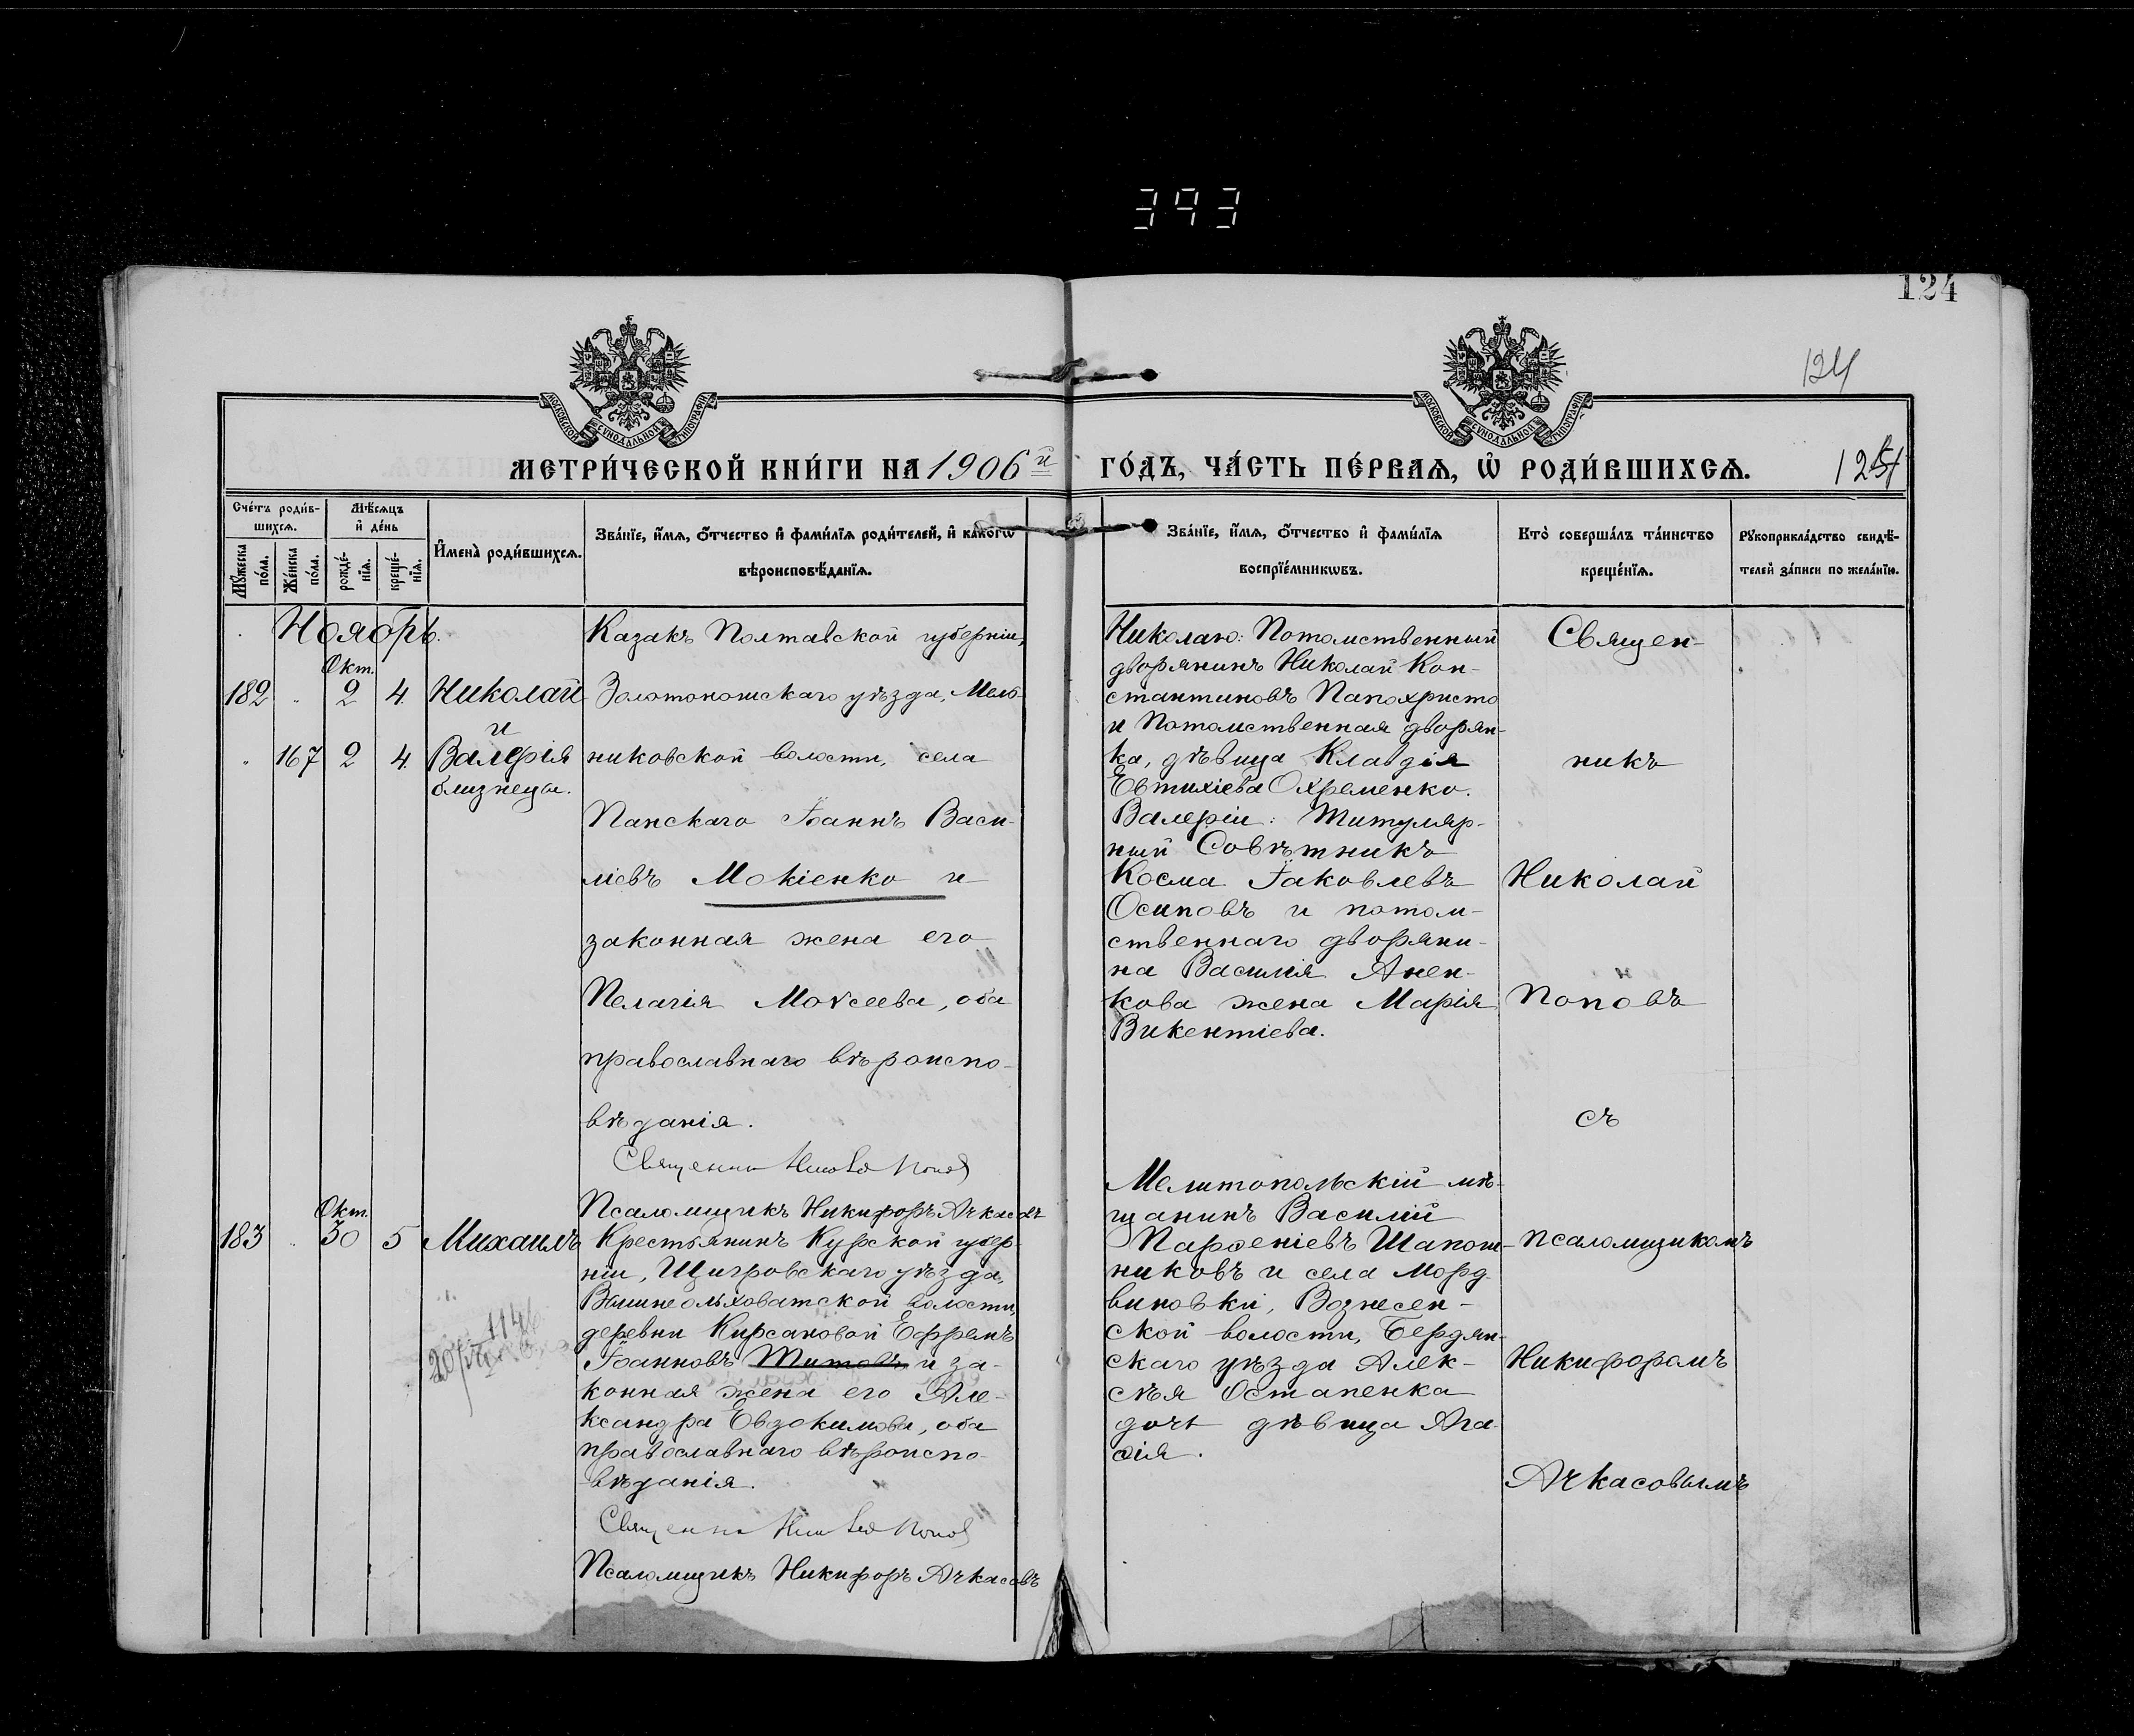 393
124
124
МОСКОВСКОЙ СУНОДАЛЬНОЙ ТИПОГРАФІИ
МОСКОВСКОЙ СУНОДАЛЬНОЙ ТИПОГРАФІИ
МЕТРИ́ЧЕСКОЙ КНИ́ГИ НА 1906 й ГО́ДЪ, ЧА́СТЬ ПЕ́РВАѦ, Ѡ҆ РОДИ́ВШИХСѦ.
Сче́тъ роди́в-
шихсѧ.
Мꙋ́жеска по́ла.
Же́нска по́ла.
Мѣ́сѧцъ
и҆ де́нь
рожде́-
нїѧ.
креще́-
нїѧ.
И҆мена̀ роди́вшихсѧ.
Зва́нїе, и҆́мѧ, ѻ҆́тчество и҆ фами́лїѧ роди́телей, и҆ како́гѡ
вѣроисповѣ́данїѧ.
Зва́нїе, и҆́мѧ, ѻ҆́тчество и҆ фами́лїѧ
воспрїе́мникѡвъ.
Кто̀ соверша́лъ та́инство
креще́нїѧ.
Рꙋкоприкла́дство свидѣ́-
телей за́писи по жела́нїю.
Ноябрь.
Окт.
182 " 2 4. Николай
и
" 167 2 4. Валерія
близнецы.
Казакъ Полтавской губерніи,
Золотоношскаго уѣзда, Мель-
никовской волости, села
Панскаго Іоаннъ Васи-
ліевъ Мокіенко и
законная жена его
Пелагія Моѵсеева, оба
православнаго вѣроиспо-
вѣданія.
Священникъ Николай Поповъ
Псаломщикъ Никифоръ Ачкасовъ
Николаю: Потомственный
дворянинъ Николай Кон-
стантиновъ Папохристо
и Потомственная дворян-
ка, дѣвица Клавдія
Евтихіева Охременко.
Валеріи: Титуляр-
ный Совѣтникъ
Косма Іаковлевъ
Осиповъ и потом-
ственнаго дворяни-
на Василія Анен-
кова жена Марія
Викентіева.
Священ-
никъ
Николай
Поповъ
съ
псаломщикомъ
Никифоромъ
Ачкасовымъ
Окт.
183 " 30 5 Михаилъ
Крестьянинъ Курской губер-
ніи, Щигровскаго уѣзда,
Вышнеольховатской волости,
деревни Кирсановой Ефремъ
Іоанновъ Титовъ и за-
конная жена его Але-
ксандра Евдокимова, оба
православнаго вѣроиспо-
вѣданія.
Священникъ Николай Поповъ
Псаломщикъ Никифоръ Ачкасовъ
Мелитопольскій мѣ-
щанинъ Василій
Парѳеніевъ Шапош-
никовъ и села Морд-
виновки, Вознесен-
ской волости, Бердян-
скаго уѣзда Алек-
сѣя Остапенка
дочь дѣвица Ага-
ѳія.